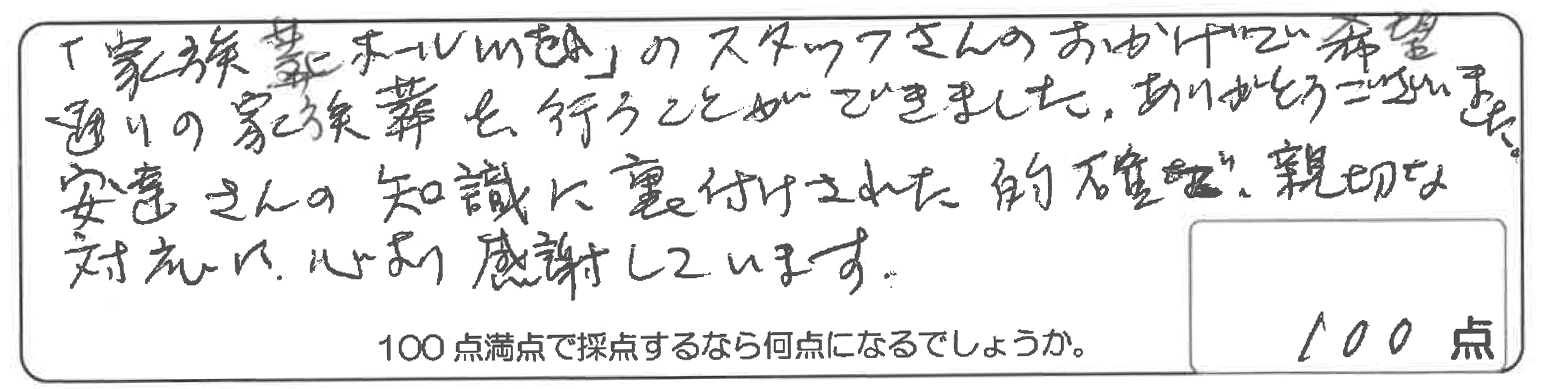 「家族葬ホール」のスタッフさんのおかげで希望
通りの家族葬を行うことができました。ありがとうございました。
安達さんの知識に裏付けされた的確で、親切な
対応に、心より感謝しています。
100点満点で採点するなら何点になるでしょうか。
100点